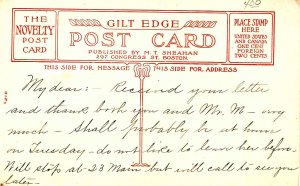 420
THE
NOVELTY
POST
CARD
GILT EDGE
POST CARD
PUBLISHED BY M. T. SHEAHAN
297 CONGRESS ST. BOSTON.
PLACE STAMP
HERE
UNITED STATES
AND CANADA
ONE CENT
FOREIGN
TWO CENTS
THIS SIDE FOR MESSAGE
THIS SIDE FOR ADDRESS
My dear :- Received your letter
and thank both you and Mr. M- very
much - Shall probably be at home
on Tuesday - do not like to leave her before.
Will stop at 23 Main but will call to see you
later